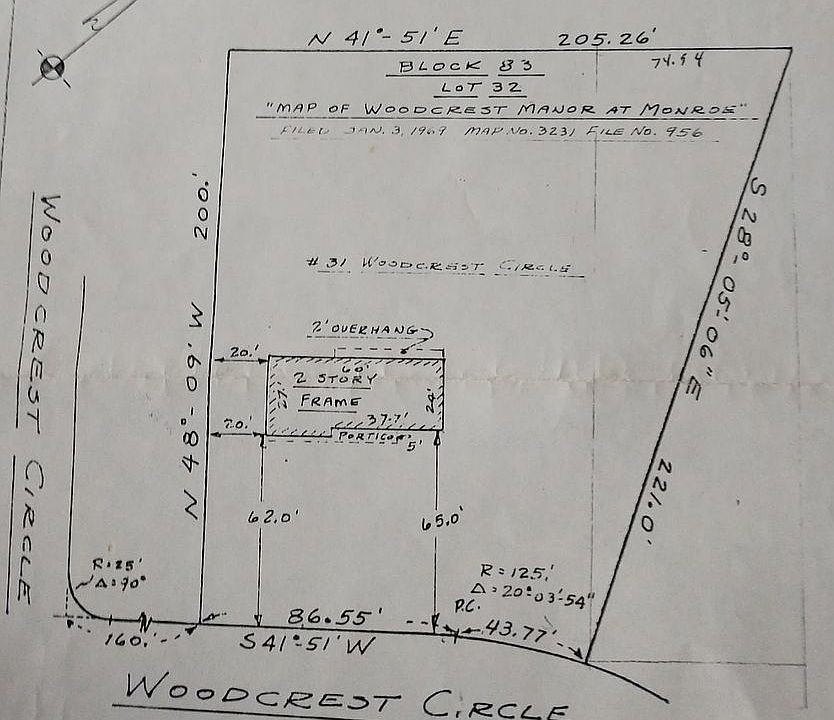 N
N 41°-51' E 205.26'
74.94
BLOCK 83
LOT 32
"MAP OF WOODCREST MANOR AT MONROE"
FILED JAN. 3, 1969 MAP NO. 3231 FILE NO. 956
WOODCREST CIRCLE
N 48°-09' W 200.'
S 28°-05'-06" E 221.0'
#31 WOODCREST CIRCLE
2' OVERHANG
20.'
60'
2 STORY
FRAME
27'
24'
37.7'
20.'
PORTICO 5'
62.0'
65.0'
R=25'
Δ=90°
R=125.'
Δ=20°-03'-54"
P.C.
86.55'
43.77'
160.'
S 41°-51' W
WOODCREST CIRCLE